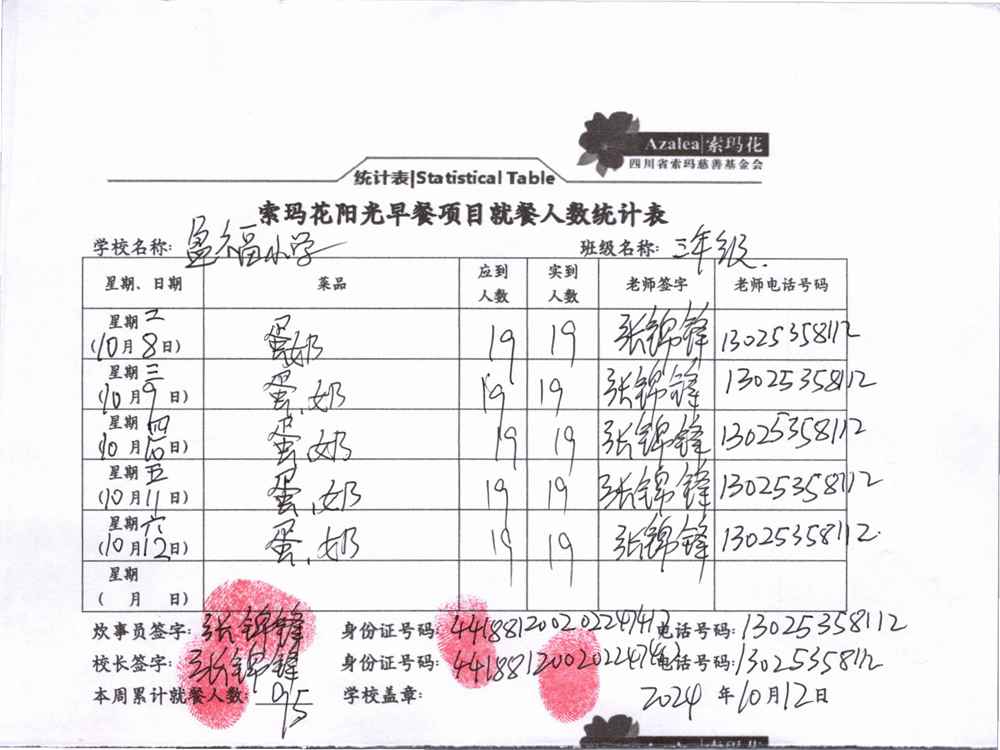 Azalea|索玛花
四川省索玛慈善基金会
统计表|Statistical Table
索玛花阳光早餐项目就餐人数统计表
学校名称: 盈福小学 班级名称: 三年级.
星期、日期 菜品 应到人数 实到人数 老师签字 老师电话号码
星期二 (10月8日) 蛋奶 19 19 张锦锋 13025358112
星期三 (10月9日) 蛋、奶 19 19 张锦锋 13025358112
星期四 (10月10日) 蛋、奶 19 19 张锦锋 13025358112
星期五 (10月11日) 蛋、奶 19 19 张锦锋 13025358112
星期六 (10月12日) 蛋、奶 19 19 张锦锋 13025358112.
星期 ( 月 日)
炊事员签字: 张锦锋 身份证号码: 441881200202247412 电话号码: 13025358112
校长签字: 张锦锋 身份证号码: 441881200202247412 电话号码: 13025358112
本周累计就餐人数: 95 学校盖章: 2024年10月12日